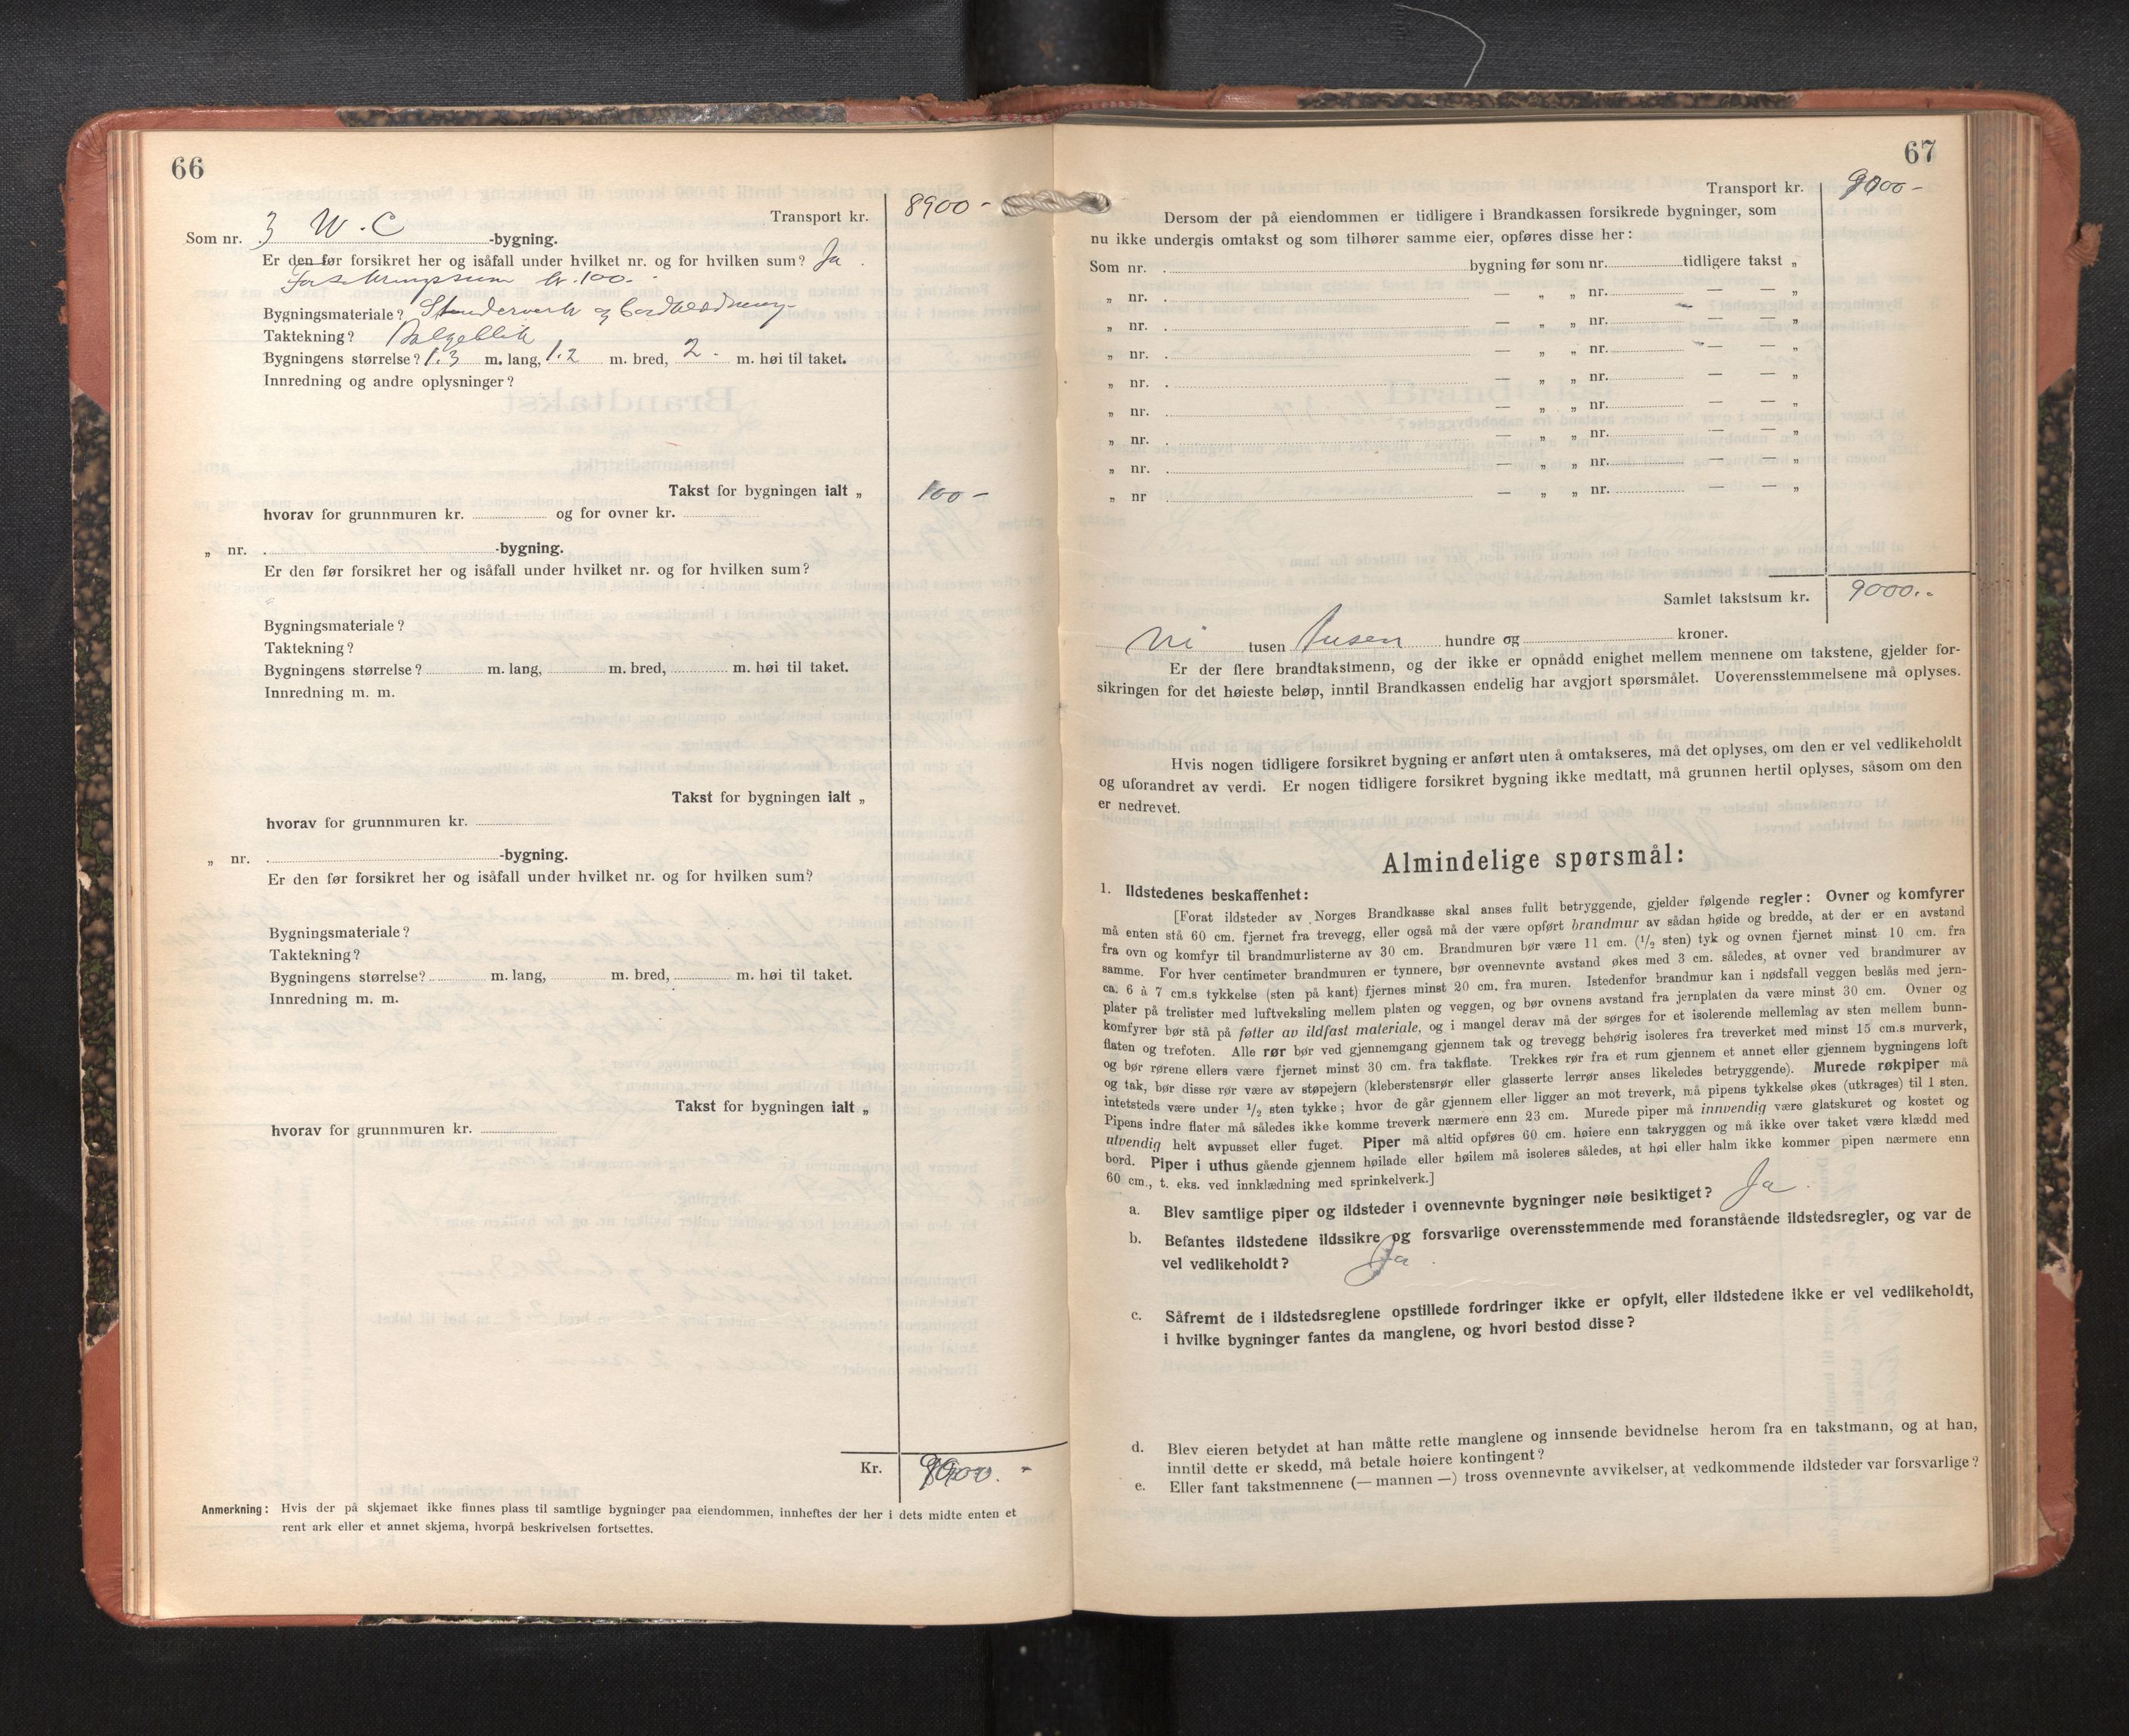 66
Transport kr. 8900-
Som nr. 3 W.C -bygning.
Er den før forsikret her og isåfall under hvilket nr. og for hvilken sum? Ja.
kr. 100.-
Bygningsmateriale? Standerverk og bordklædning
Taktekning? Bølgeblik
Bygningens størrelse? 1.3 m. lang, 1.2 m. bred, 2- m. høi til taket.
Innredning og andre oplysninger?
Takst for bygningen ialt „ 100-
hvorav for grunnmuren kr. og for ovner kr.
„ nr. -bygning.
Er den før forsikret her og isåfall under hvilket nr. og for hvilken sum?
Bygningsmateriale?
Taktekning?
Bygningens størrelse? m. lang, m. bred, m. høi til taket.
Innredning m. m.
Takst for bygningen ialt „
hvorav for grunnmuren kr.
„ nr. -bygning.
Er den før forsikret her og isåfall under hvilket nr. og for hvilken sum?
Bygningsmateriale?
Taktekning?
Bygningens størrelse? m. lang, m. bred, m. høi til taket.
Innredning m. m.
Takst for bygningen ialt „
hvorav for grunnmuren kr.
Kr. 9000.-
Anmerkning: Hvis der på skjemaet ikke finnes plass til samtlige bygninger paa eiendommen, innheftes der her i dets midte enten et
rent ark eller et annet skjema, hvorpå beskrivelsen fortsettes.
67
Transport kr. 9000-
Dersom der på eiendommen er tidligere i Brandkassen forsikrede bygninger, som
nu ikke undergis omtakst og som tilhører samme eier, opføres disse her:
Som nr. bygning før som nr. tidligere takst „
„ nr. — „ „ nr. — — „
„ nr. — „ „ nr. — — „
„ nr. — „ „ nr. — — „
„ nr. — „ „ nr. — — „
„ nr. — „ „ nr. — — „
„ nr. — „ „ nr. — — „
„ nr. — „ „ nr. — — „
„ nr — „ „ nr. — — „
Samlet takstsum kr. 9000.-
Ni tusen tusen hundre og kroner.
Er der flere brandtakstmenn, og der ikke er opnådd enighet mellem mennene om takstene, gjelder for-
sikringen for det høieste beløp, inntil Brandkassen endelig har avgjort spørsmålet. Uoverensstemmelsene må oplyses.
Hvis nogen tidligere forsikret bygning er anført uten å omtakseres, må det oplyses, om den er vel vedlikeholdt
og uforandret av verdi. Er nogen tidligere forsikret bygning ikke medtatt, må grunnen hertil oplyses, såsom om den
er nedrevet.
Almindelige spørsmål:
1. Ildstedenes beskaffenhet:
[Forat ildsteder av Norges Brandkasse skal anses fullt betryggende, gjelder følgende regler: Ovner og komfyrer
må enten stå 60 cm. fjernet fra trevegg, eller også må der være opført brandmur av sådan høide og bredde, at der er en avstand
fra ovn og komfyr til brandmurlisterne av 30 cm. Brandmuren bør være 11 cm. (1/2 sten) tyk og ovnen fjernet minst 10 cm. fra
samme. For hver centimeter brandmuren er tynnere, bør ovennevnte avstand økes med 3 cm. således, at ovner ved brandmurer av
ca. 6 à 7 cm.s tykkelse (sten på kant) fjernes minst 20 cm. fra muren. Istedenfor brandmur kan i nødsfall veggen beslås med jern-
plater på trelister med luftveksling mellem platen og veggen, og bør ovnens avstand fra jernplaten da være minst 30 cm. Ovner og
komfyrer bør stå på føtter av ildfast materiale, og i mangel derav må der sørges for et isolerende mellemlag av sten mellem bunn-
flaten og trefoten. Alle rør bør ved gjennemgang gjennem tak og trevegg behørig isoleres fra treverket med minst 15 cm.s murverk,
og bør rørene ellers være fjernet minst 30 cm. fra takflate. Trekkes rør fra et rum gjennem et annet eller gjennem bygningens loft
og tak, bør disse rør være av støpejern (kleberstensrør eller glasserte lerrør anses likeledes betryggende). Murede røkpiper må
intetsteds være under 1/2 sten tykke; hvor de går gjennem eller ligger an mot treverk, må pipens tykkelse økes (utkrages) til 1 sten.
Pipens indre flater må således ikke komme treverk nærmere enn 23 cm. Murede piper må innvendig være glatskuret og kostet og
utvendig helt avpusset eller fuget. Piper må altid opføres 60 cm. høiere enn takryggen og må ikke over taket være klædd med
bord. Piper i uthus gående gjennem høilade eller høilem må isoleres således, at høi eller halm ikke kommer pipen nærmere enn
60 cm., t. eks. ved innklædning med sprinkelverk.]
a. Blev samtlige piper og ildsteder i ovennevnte bygninger nøie besiktiget? Ja.
b. Befantes ildstedene ildssikre og forsvarlige overensstemmende med foranstående ildstedsregler, og var de
vel vedlikeholdt? Ja.
c. Såfremt de i ildstedsreglene opstillede fordringer ikke er opfylt, eller ildstedene ikke er vel vedlikeholdt,
i hvilke bygninger fantes da manglene, og hvori bestod disse?
d. Blev eieren betydet at han måtte rette manglene og innsende bevidnelse herom fra en takstmann, og at han,
inntil dette er skedd, må betale høiere kontingent?
e. Eller fant takstmennene (— mannen —) tross ovennevnte avvikelser, at vedkommende ildsteder var forsvarlige?